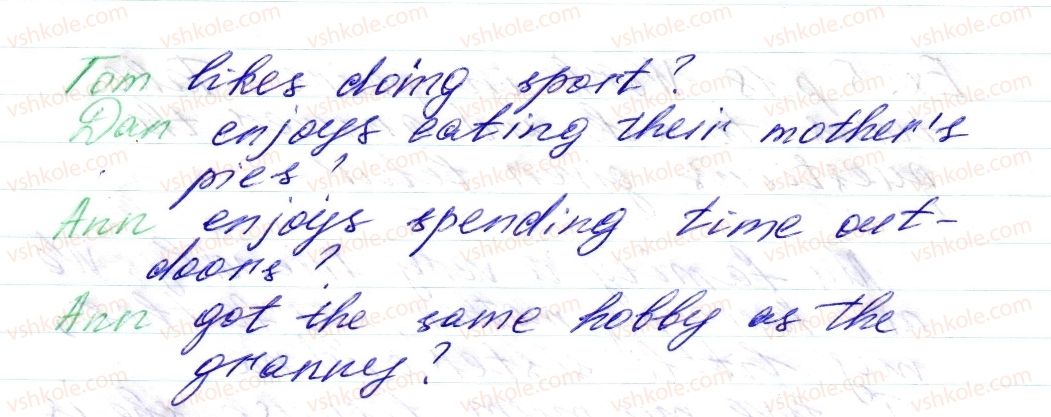 Tom likes doing sport?
Dan enjoys eating their mother's
pies?
Ann enjoys spending time out-
doors?
Ann got the same hobby as the
granny?